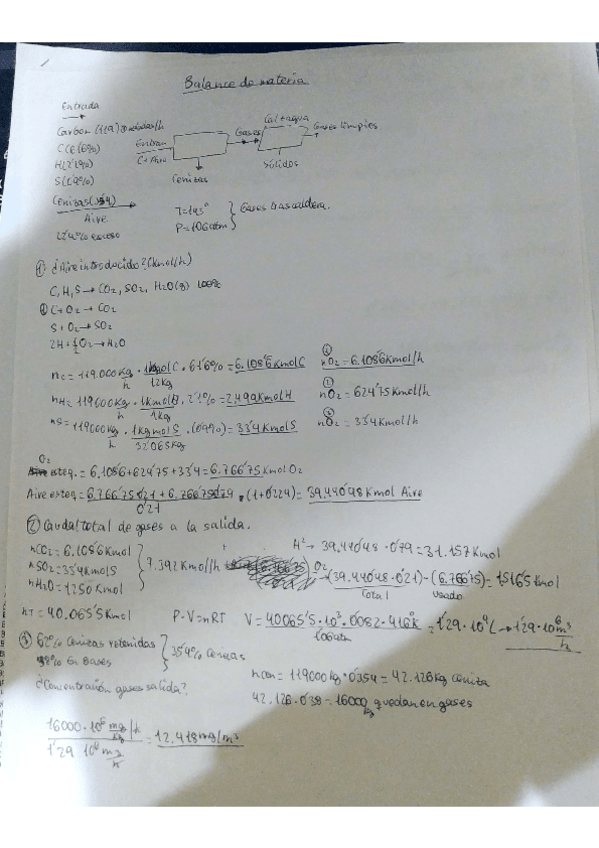 Balance de materia
Entrada
Carbon (119) toneladas/h
C(61'6%)
H(2'1%)
S(0'9%)
Cenizas(35'4)
Aire
22'4% exceso
Entran
C + Aire
Cenizas
Gases
Cal + agua
Gases limpios
Sólidos
T=143°
P=1'06atm
Gases tras caldera.
① ¿Aire introducido? (kmol/h)
C, H, S → CO2, SO2, H2O(g) 100%
C+O2 → CO2
S+O2 → SO2
2H+½O2 → H2O
nC= 119.000 kg/h · 1kmol C/12kg · 61'6% = 6.108'6 Kmol C
nO2 = 6.108'6 Kmol/h
nH= 119000 kg/h · 1kmol H/1kg · 2'1% = 2.499 Kmol H
nO2 = 624'75 Kmol/h
nS= 119000 kg/h · 1kg mol S/32'065kg · (0'9%) = 33'4 Kmol S
nO2 = 33'4 Kmol/h
O2 esteq. = 6.108'6+624'75+33'4 = 6.766'75 Kmol O2
Aire esteq = 6.766'75·0'21 + 6.766'75·0'79 / 0'21 · (1+0'224) = 39.440'48 Kmol Aire
② Caudal total de gases a la salida.
nCO2 = 6.108'6 Kmol
nSO2 = 33'4 Kmol S
nH2O = 1250 Kmol
7.392 Kmol/h +
→ 39.440'48 · 0'79 = 31.157 Kmol
O2 → (39.440'48·0'21) - (6.766'75) = 1516'5 Kmol
Total
usado
nT = 40.065'5 Kmol
P·V=nRT
V = 40065'5·10³·0'082·416K / 1'06atm = 1'29·10⁹ L → 1'29·10⁶ m³/h
③ 62% Cenizas retenidas
38% En Gases
35'4% Cenizas
¿Concentración gases salida?
nCen = 119000 kg · 0'354 = 42.126 kg ceniza
42.126·0'38 = 16000 kg quedan en gases
16000·10⁶ mg/kg /h / 1'29·10⁶ m³/h = 12.418 mg/m³